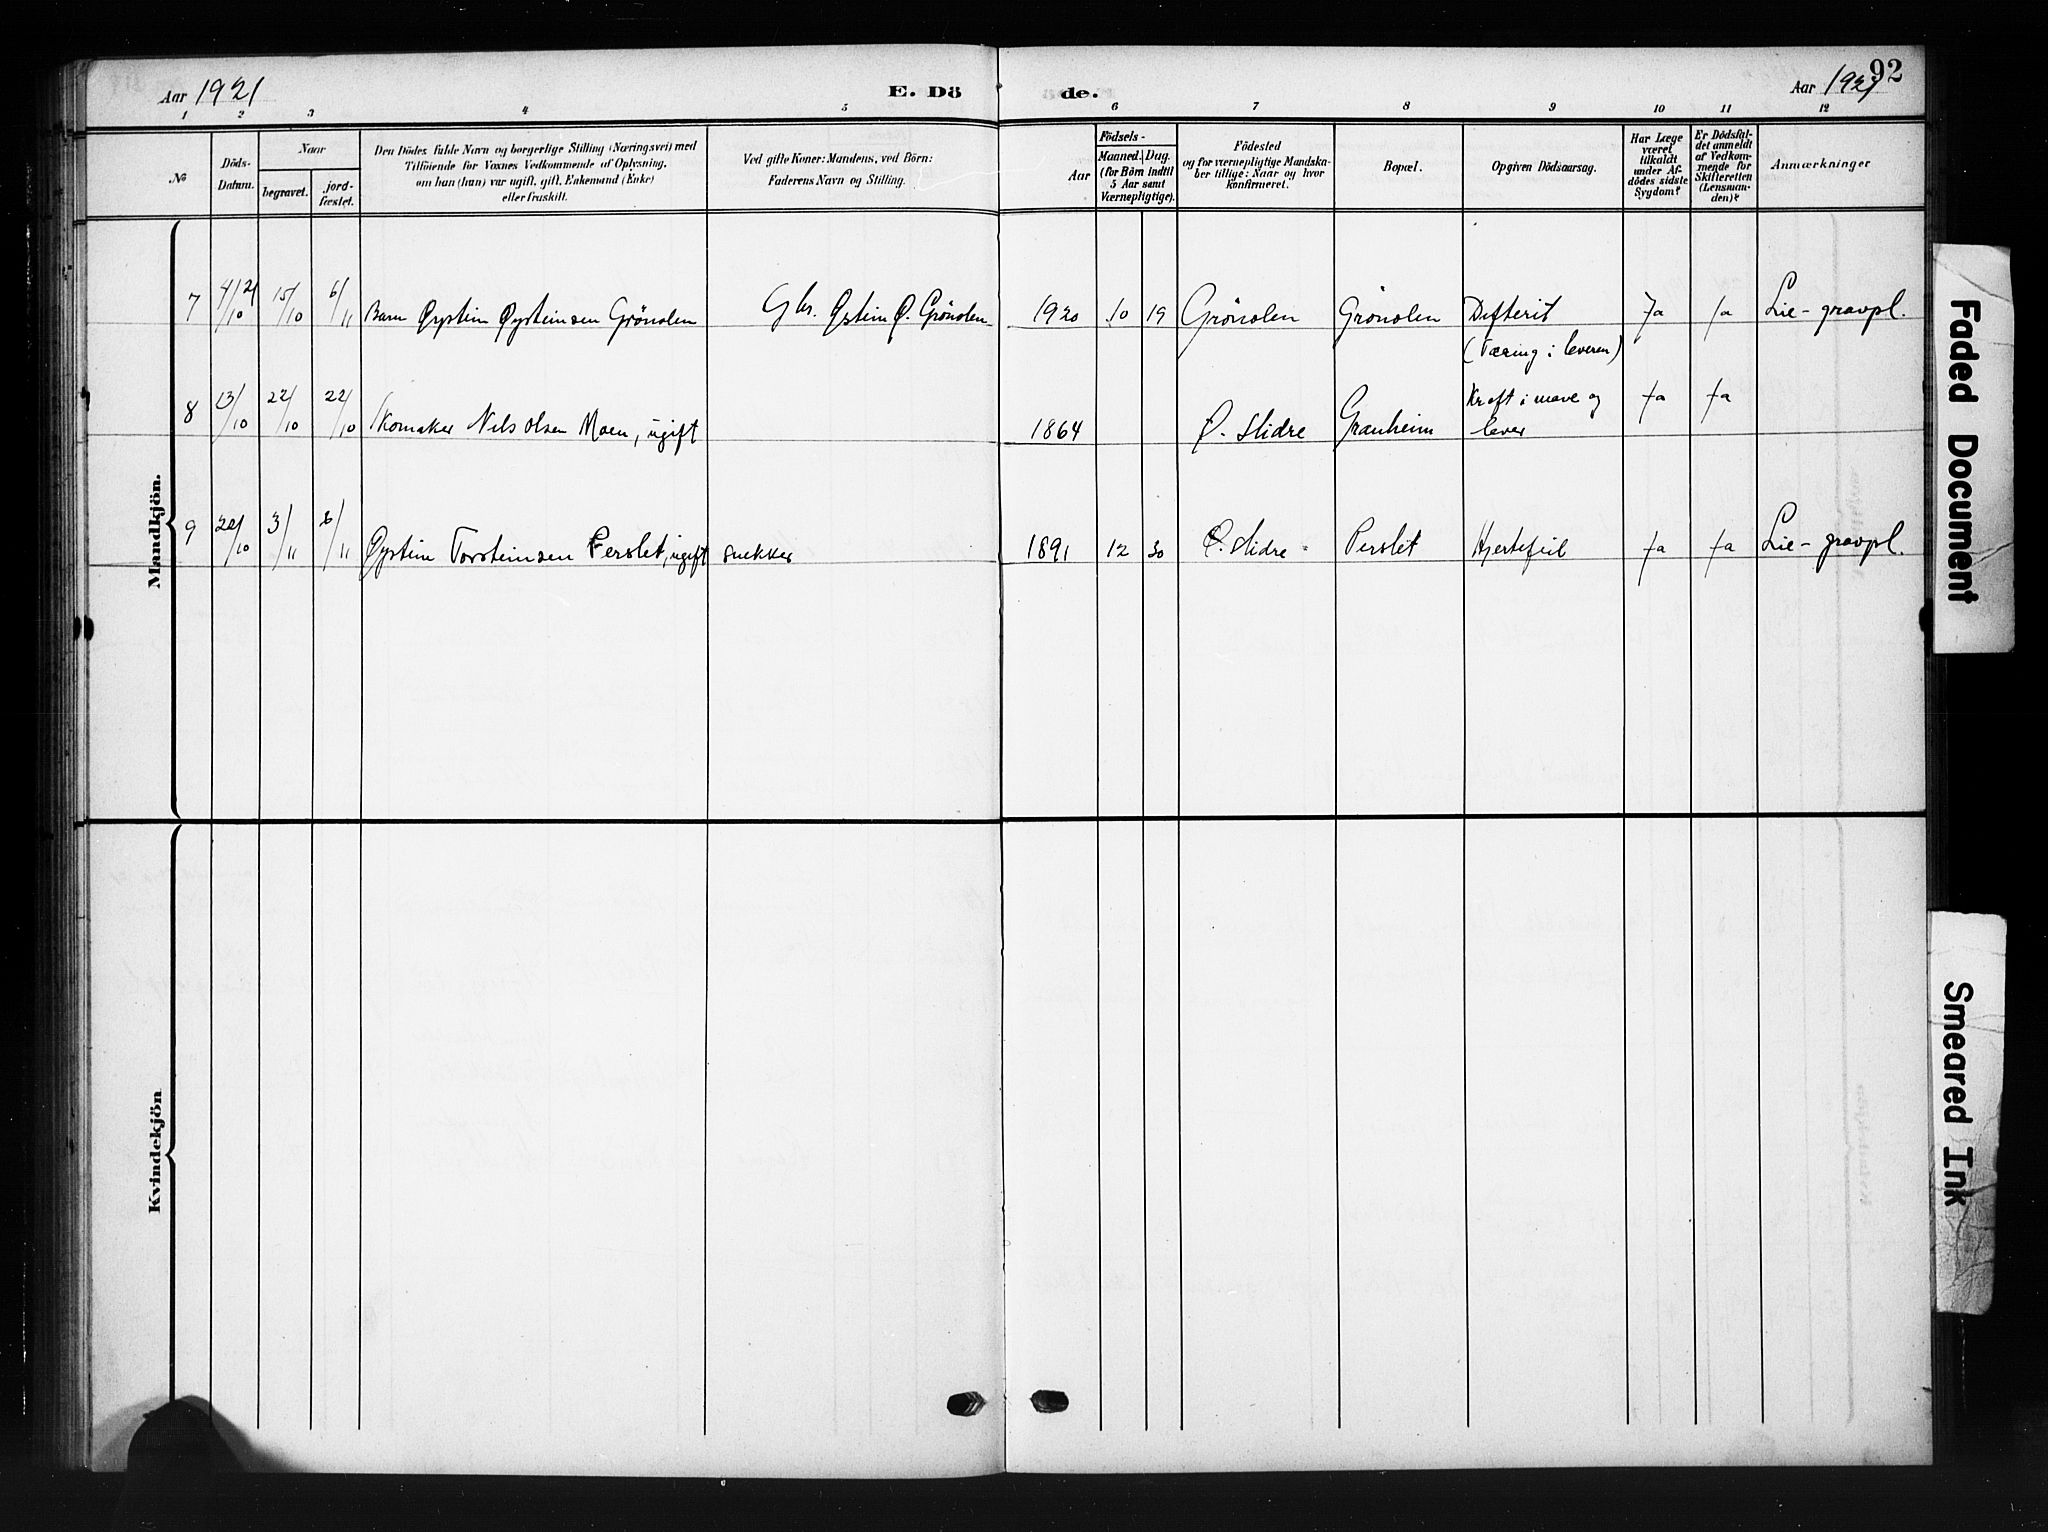 Aar 1921
E. Dö
de.
Aar 1921
92
1 2 3 4 5 6 7 8 9 10 11 12
No
Döds-
Datum.
Naar
begravet.
jord-
fæstet.
Den Dödes fulde Navn og borgerlige Stilling (Næringsvei) med
Tilföiende for Voxnes Vedkommende af Oplysning,
om han (hun) var ugift, gift, Enkemand (Enke)
eller fraskilt.
Ved gifte Koner: Mandens, ved Börn:
Faderens Navn og Stilling.
Födsels-
Aar
Maaned. Dag.
(for Börn indtil
5 Aar samt
Værnepligtige).
Födested
og for værnepligtige Mandska-
ber tillige: Naar og hvor
konfirmeret.
Bopæl.
Opgiven Dödsaarsag.
Har Læge
været
tilkaldt
under Af-
dödes sidste
Sygdom?
Er Dödsfal-
det anmeldt
af Vedkom-
mende for
Skifteretten
(Lensman-
den)?
Anmærkninger
Mandkjön.
7 4/10 21 15/10 6/11 Barn Øystein Øysteinsen Grönolen Gbr. Østein Ø. Grönolen 1920 10 19 Grönolen Grönolen Difterit Ja Ja Lie - gravpl.
(Tæring i leveren)
8 13/10 22/10 22/10 Skomaker Nils Olsen Moen, ugift 1864 Ø. Slidre Granheim Kræft i mave og Ja Ja
lever
9 /10 3/11 6/11 Øystein Torsteinsen Perslet, ugift snekker 1891 12 30 Ø. Slidre Perslet Hjertefeil Ja Ja Lie - gravpl.
Kvindekjön
Faded Document
Smeared Ink